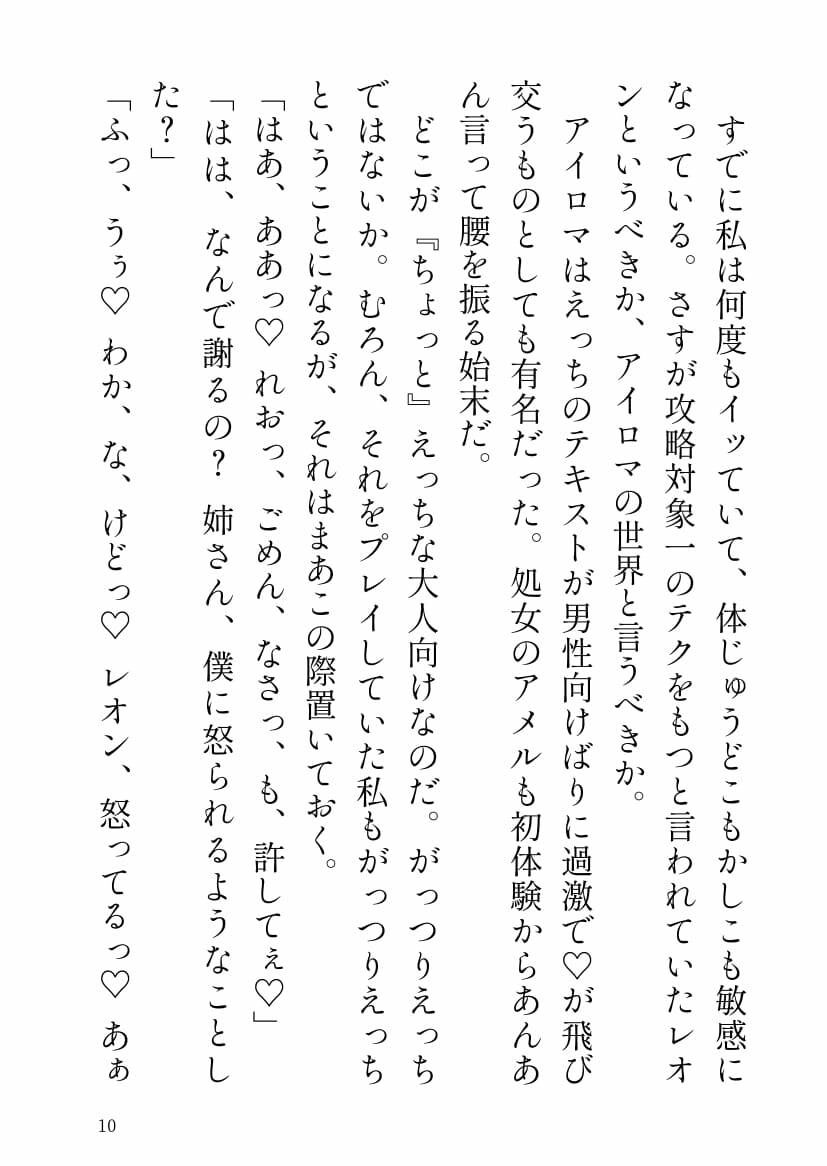 すでに私は何度もイッていて、体じゅうどこもかしこも敏感に
なっている。さすが攻略対象一のテクをもつと言われていたレオ
ンというべきか、アイロマの世界と言うべきか。
　アイロマはえっちのテキストが男性向けばりに過激で♡が飛び
交うものとしても有名だった。処女のアメルも初体験からあんあ
ん言って腰を振る始末だ。
　どこが『ちょっと』えっちな大人向けなのだ。がっつりえっち
ではないか。むろん、それをプレイしていた私もがっつりえっち
ということになるが、それはまあこの際置いておく。
「はあ、ああっ♡ れおっ、ごめん、なさっ、も、許してぇ♡」
「はは、なんで謝るの？ 姉さん、僕に怒られるようなことし
た？」
「ふっ、うぅ♡ わか、な、けどっ♡ レオン、怒ってるっ♡ あぁ
10